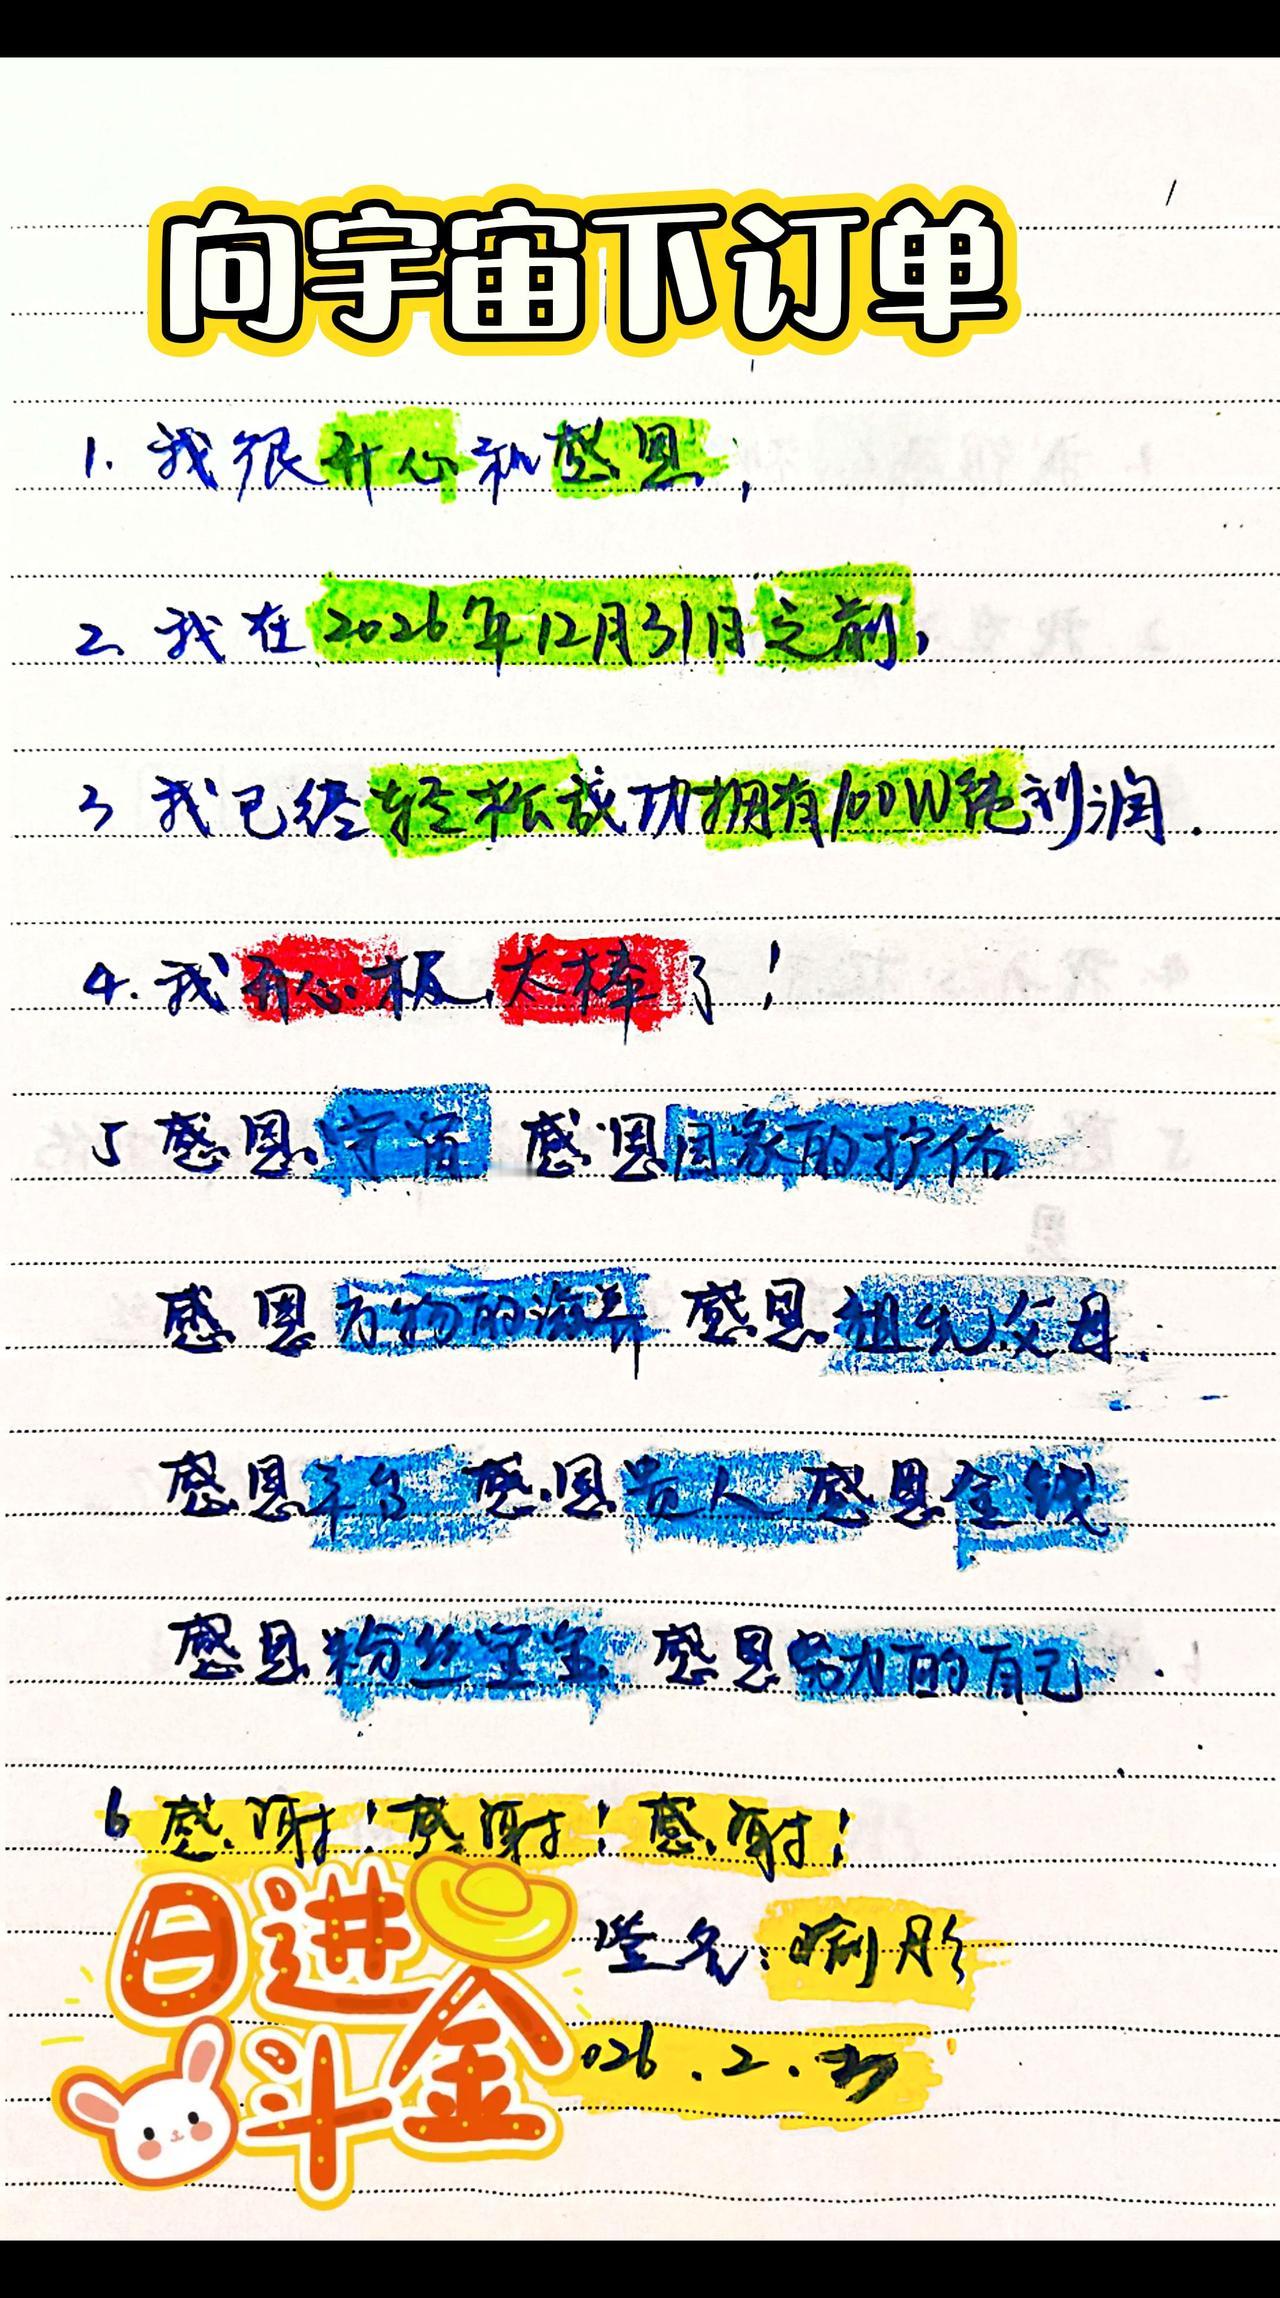 向宇宙下订单
1. 我很开心和感恩,
2. 我在2026年12月31日之前,
3 我已经轻松成功拥有100W纯利润.
4. 我开心极,太棒了!
5 感恩宇宙 感恩国家的护佑
感恩万物的滋养 感恩祖先父母.
感恩平台 感恩贵人 感恩金钱
感恩粉丝宝宝 感恩努力的自己.
6 感谢!感谢!感谢!
签名:
日进斗金
026.2.